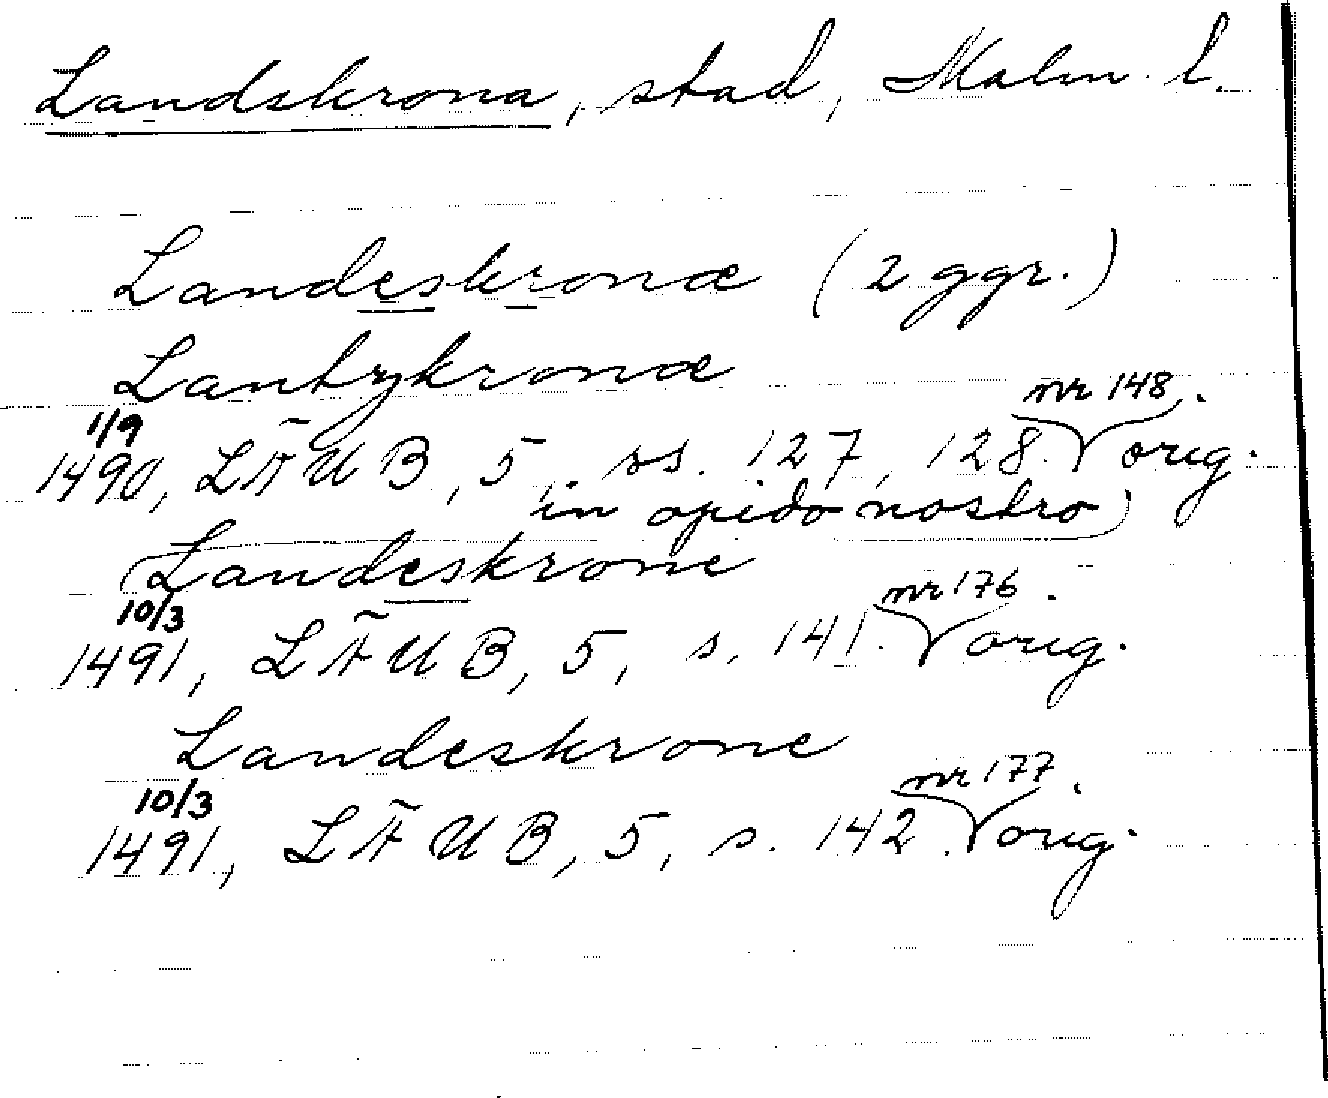 Landskrona, stad, Malm. l.
Landeskronæ (2 ggr.)
Lantzkronæ
1/9 nr 148.
1490, LÄUB, 5, ss. 127, 128. orig.
in opido nostro)
(Landeskrone
10/3 nr 176.
1491, LÄUB, 5, s. 141. orig.
Landeskrone
10/3 nr 177.
1491, LÄUB, 5, s. 142. orig.